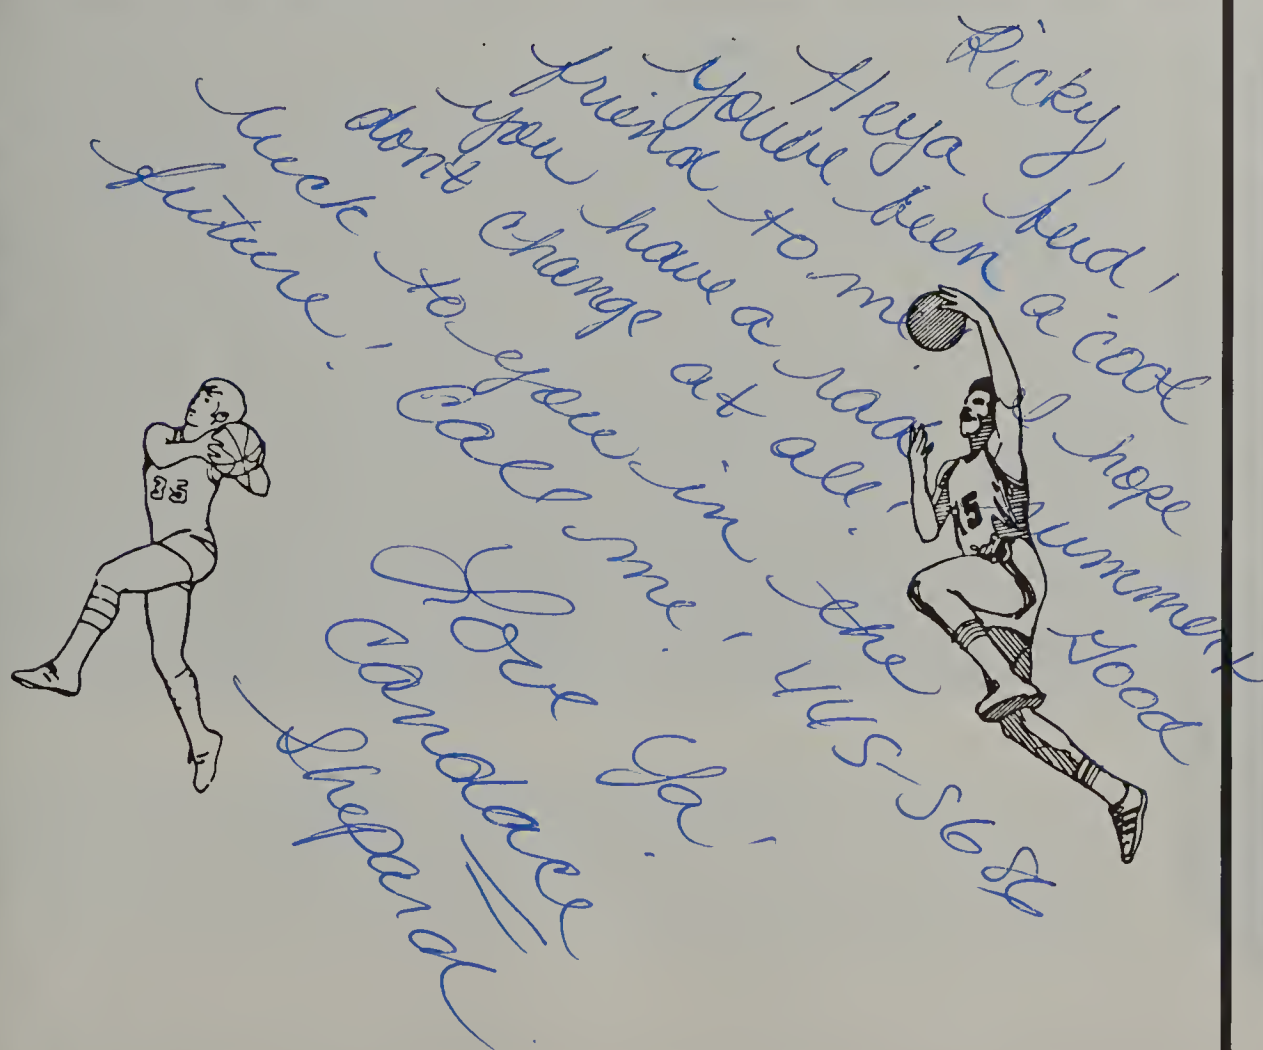 Ricky,
Heya bud!
You've been a cool
friend to me. I hope
you have a rad summer
dont change at all! Good
luck to you in the
future! Call me! 445-5686
Love Ya!
Candace
Shepard
35
15